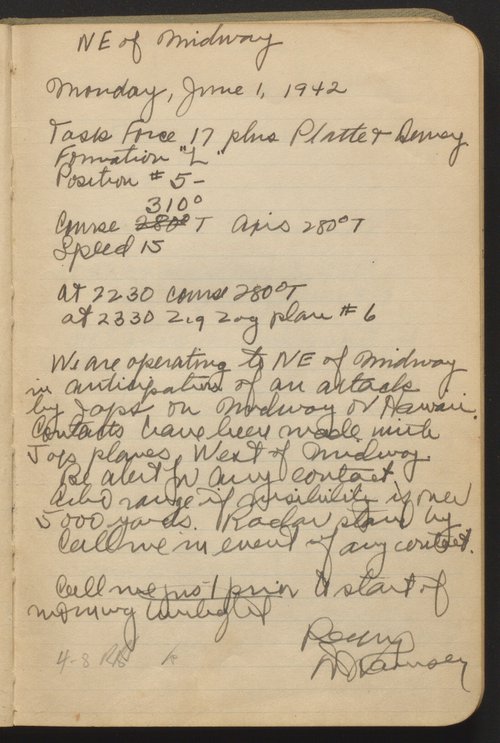 NE of Midway
Monday, June 1, 1942
Task Force 17 plus Platte & Dewey
Formation "L"
Position # 5 -
310°
Course 280° T Axis 280° T
Speed 15
at 2230 course 280°T
at 2330 Zig Zag plan # 6
We are operating to NE of Midway
in anticipation of an attack
by Japs on Midway or Hawaii.
Contacts have been made with
Jap planes West of Midway.
Be alert for any contact
range if visibility is over
5000 yards. Radar stand by
Call me in event of any contact.
Call me just prior to start of
morning twilight
Ramsey
4-8